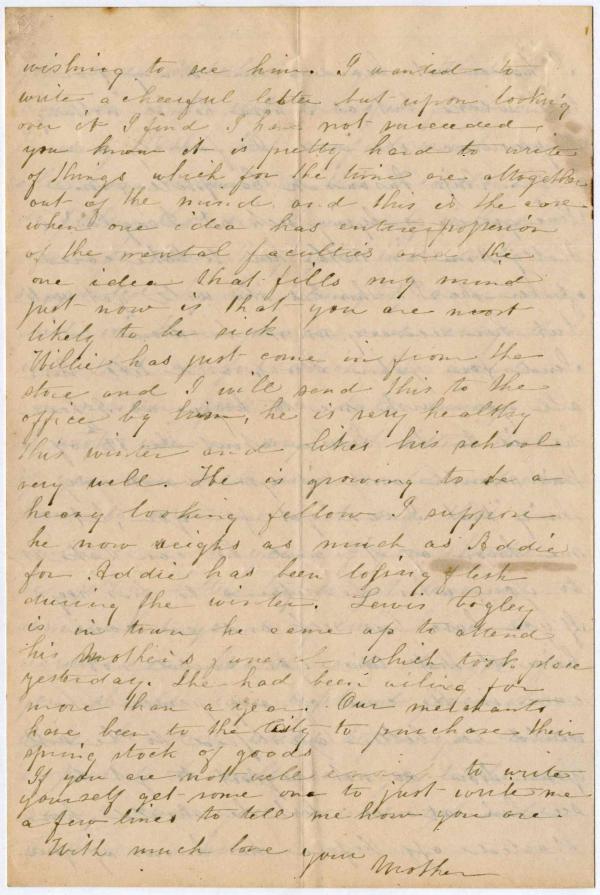 wishing to see him. I wanted to
write a cheerful letter but upon looking
over it I find I have not succeeded,
you know it is pretty hard to write
of things which for the time are altogether
out of the mind and this is the case
when one idea has entire possession
of the mental faculties and the
one idea that fills my mind
just now is that you are most
likely to be sick
Willie has just come in from the
store and I will send this to the
office by him, he is very healthy
this winter and likes his school
very well. He is growing to be a
heavy looking fellow I suppose
he now weighs as much as Addie
for Addie has been losing flesh
during the winter. Lewis Cogley
is in town he came up to attend
his Mother's funeral which took place
yesterday. She had been ailing for
more than a year. Our merchants
have been to the City to purchase their
spring stock of goods
If you are not well enough to write
yourself get some one to just write me
a few lines to tell me how you are.
With much love your Mother